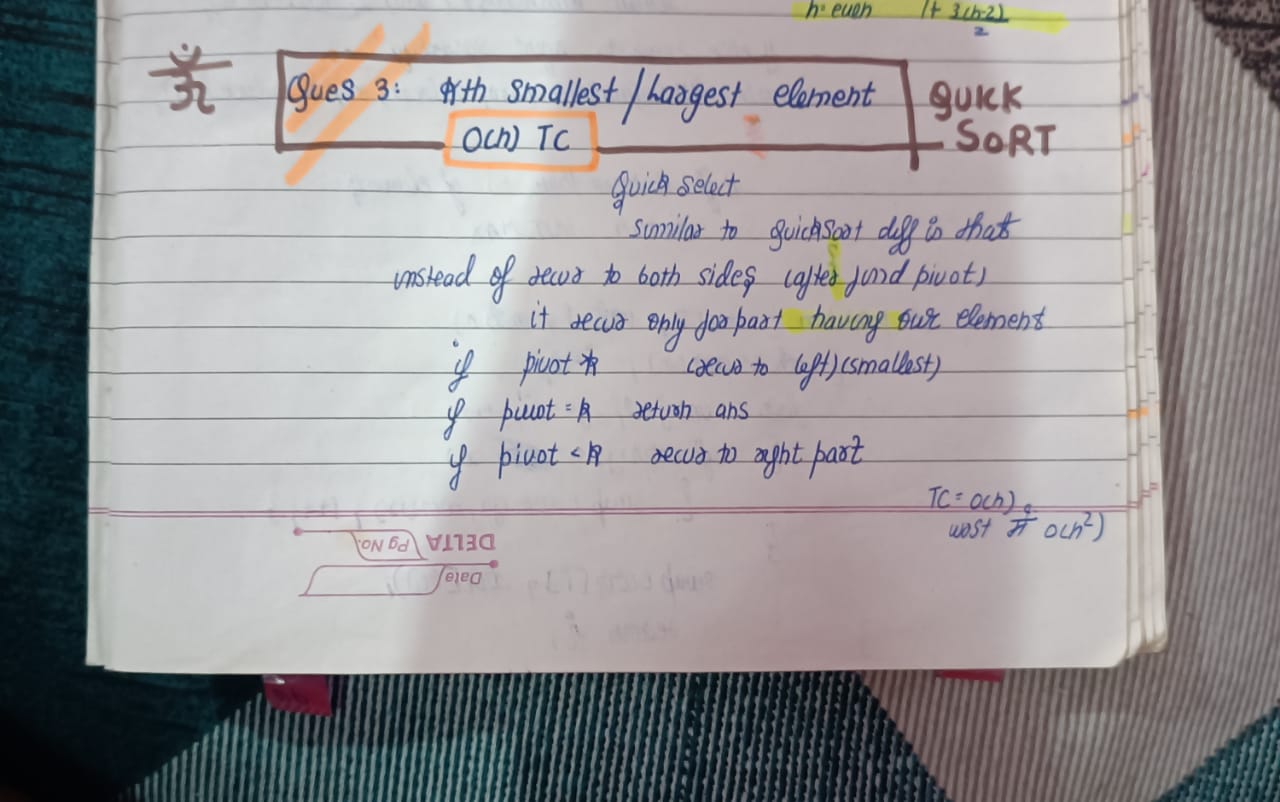 n=even 1+ 3(n-2)
2
Ques 3: kth smallest/largest element
O(n) TC
QUICK
SORT
Quick select
similar to quicksort diff is that
instead of recur to both sides (after find pivot)
it recur only for part having our element
if pivot k (recur to left) (smallest)
if pivot = k return ans
if pivot < k recur to right part
TC = O(n)
worst O(n²)
DELTA Pg No.
Date